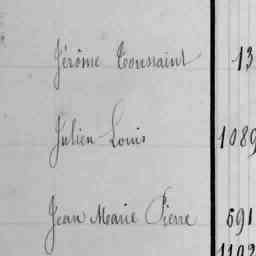 Jérôme Toussaint 13
Julien Louis 1089
Jean Marie Pierre 591
1102